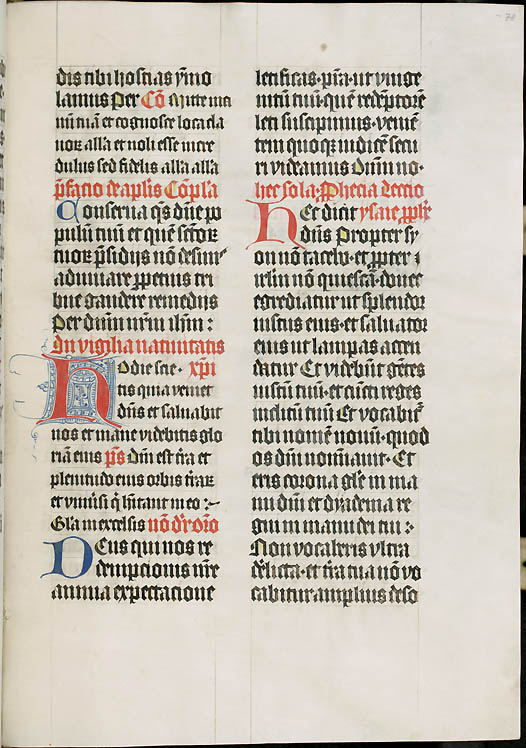 dis tibi hostias ymo
lamus Per Cõ Mitte ma
nũ tuã et cognosce loca cla
uor alla et noli esse incre
dulus sed fidelis alla alla
p̃facio de aplis Cõpla
Conserua q̃s dñe po
pulũ tuũ et quẽ sctõꝝ
tuoꝝ p̃sidijs nõ desinis
adiuuare ꝑpetuis tri
bue gaudere remedijs
Per dnm̃ nrm̃ ihm̃ :
In vigilia natiuitatis
Hodie scie · xp̃i
tis quia veniet
dñs et saluabit
nos et mane videbitis glo
riã eius p̃s Dñi est tr̃a et
plenitudo eius orbis traꝝ
et vniũsi q̃ hitant in eo :~
Gl̃a in excelsis nõ dr̃ oro
Deus qui nos re
demptionis nr̃e
annua expectacione
letificas · p̃sta · ut vnige
nitũ tuũ · quẽ redẽptorẽ
leti suscipimus · veniẽ
tem quoqꝫ iudicẽ secu
ri videamus Dñm no ·
hec sola · ꝓphecia lectio
Hec dicit ysaie ꝓph̃e
dñs Propter sy
on nõ tacebo · et ꝓpter i
rl̃m nõ quiescã · donec
egrediatur ut splendor
iustus eius · et saluator
eius ut lampas accen
datur Et videbũt gẽtes
iustũ tuũ · et cũcti reges
inclitũ tuũ Et vocabit̃
tibi nomẽ nouũ · quod
os dñi nominauit · Et
eris corona gl̃e in ma
nu dñi et dyadema re
gni in manu dei tui :
Non vocaberis vltra
d̃licta · et tr̃a tua nõ vo
cabitur amplius deso